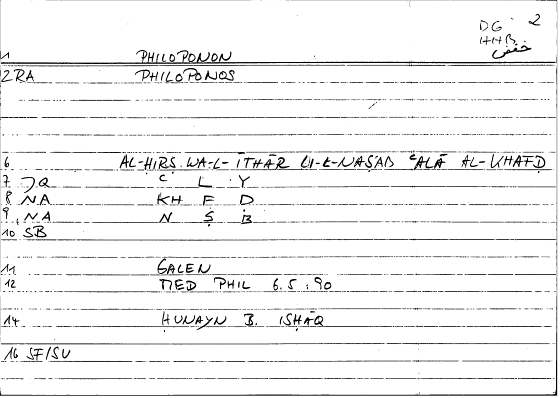 DG 2
HHB
خفض
1 PHILOPONON
2 RA PHILOPONOS
6 AL-HIRS WA-L-ĪTHĀR LI-L-NAṢAB ʿALĀ AL-KHAFḌ
7 JQ ʿ L Y
8 NA KH F Ḍ
9 NA N Ṣ B
10 SB
11 GALEN
12 MED PHIL 6.5:90
14 ḤUNAYN B. ISḤĀQ
16 SF/SU